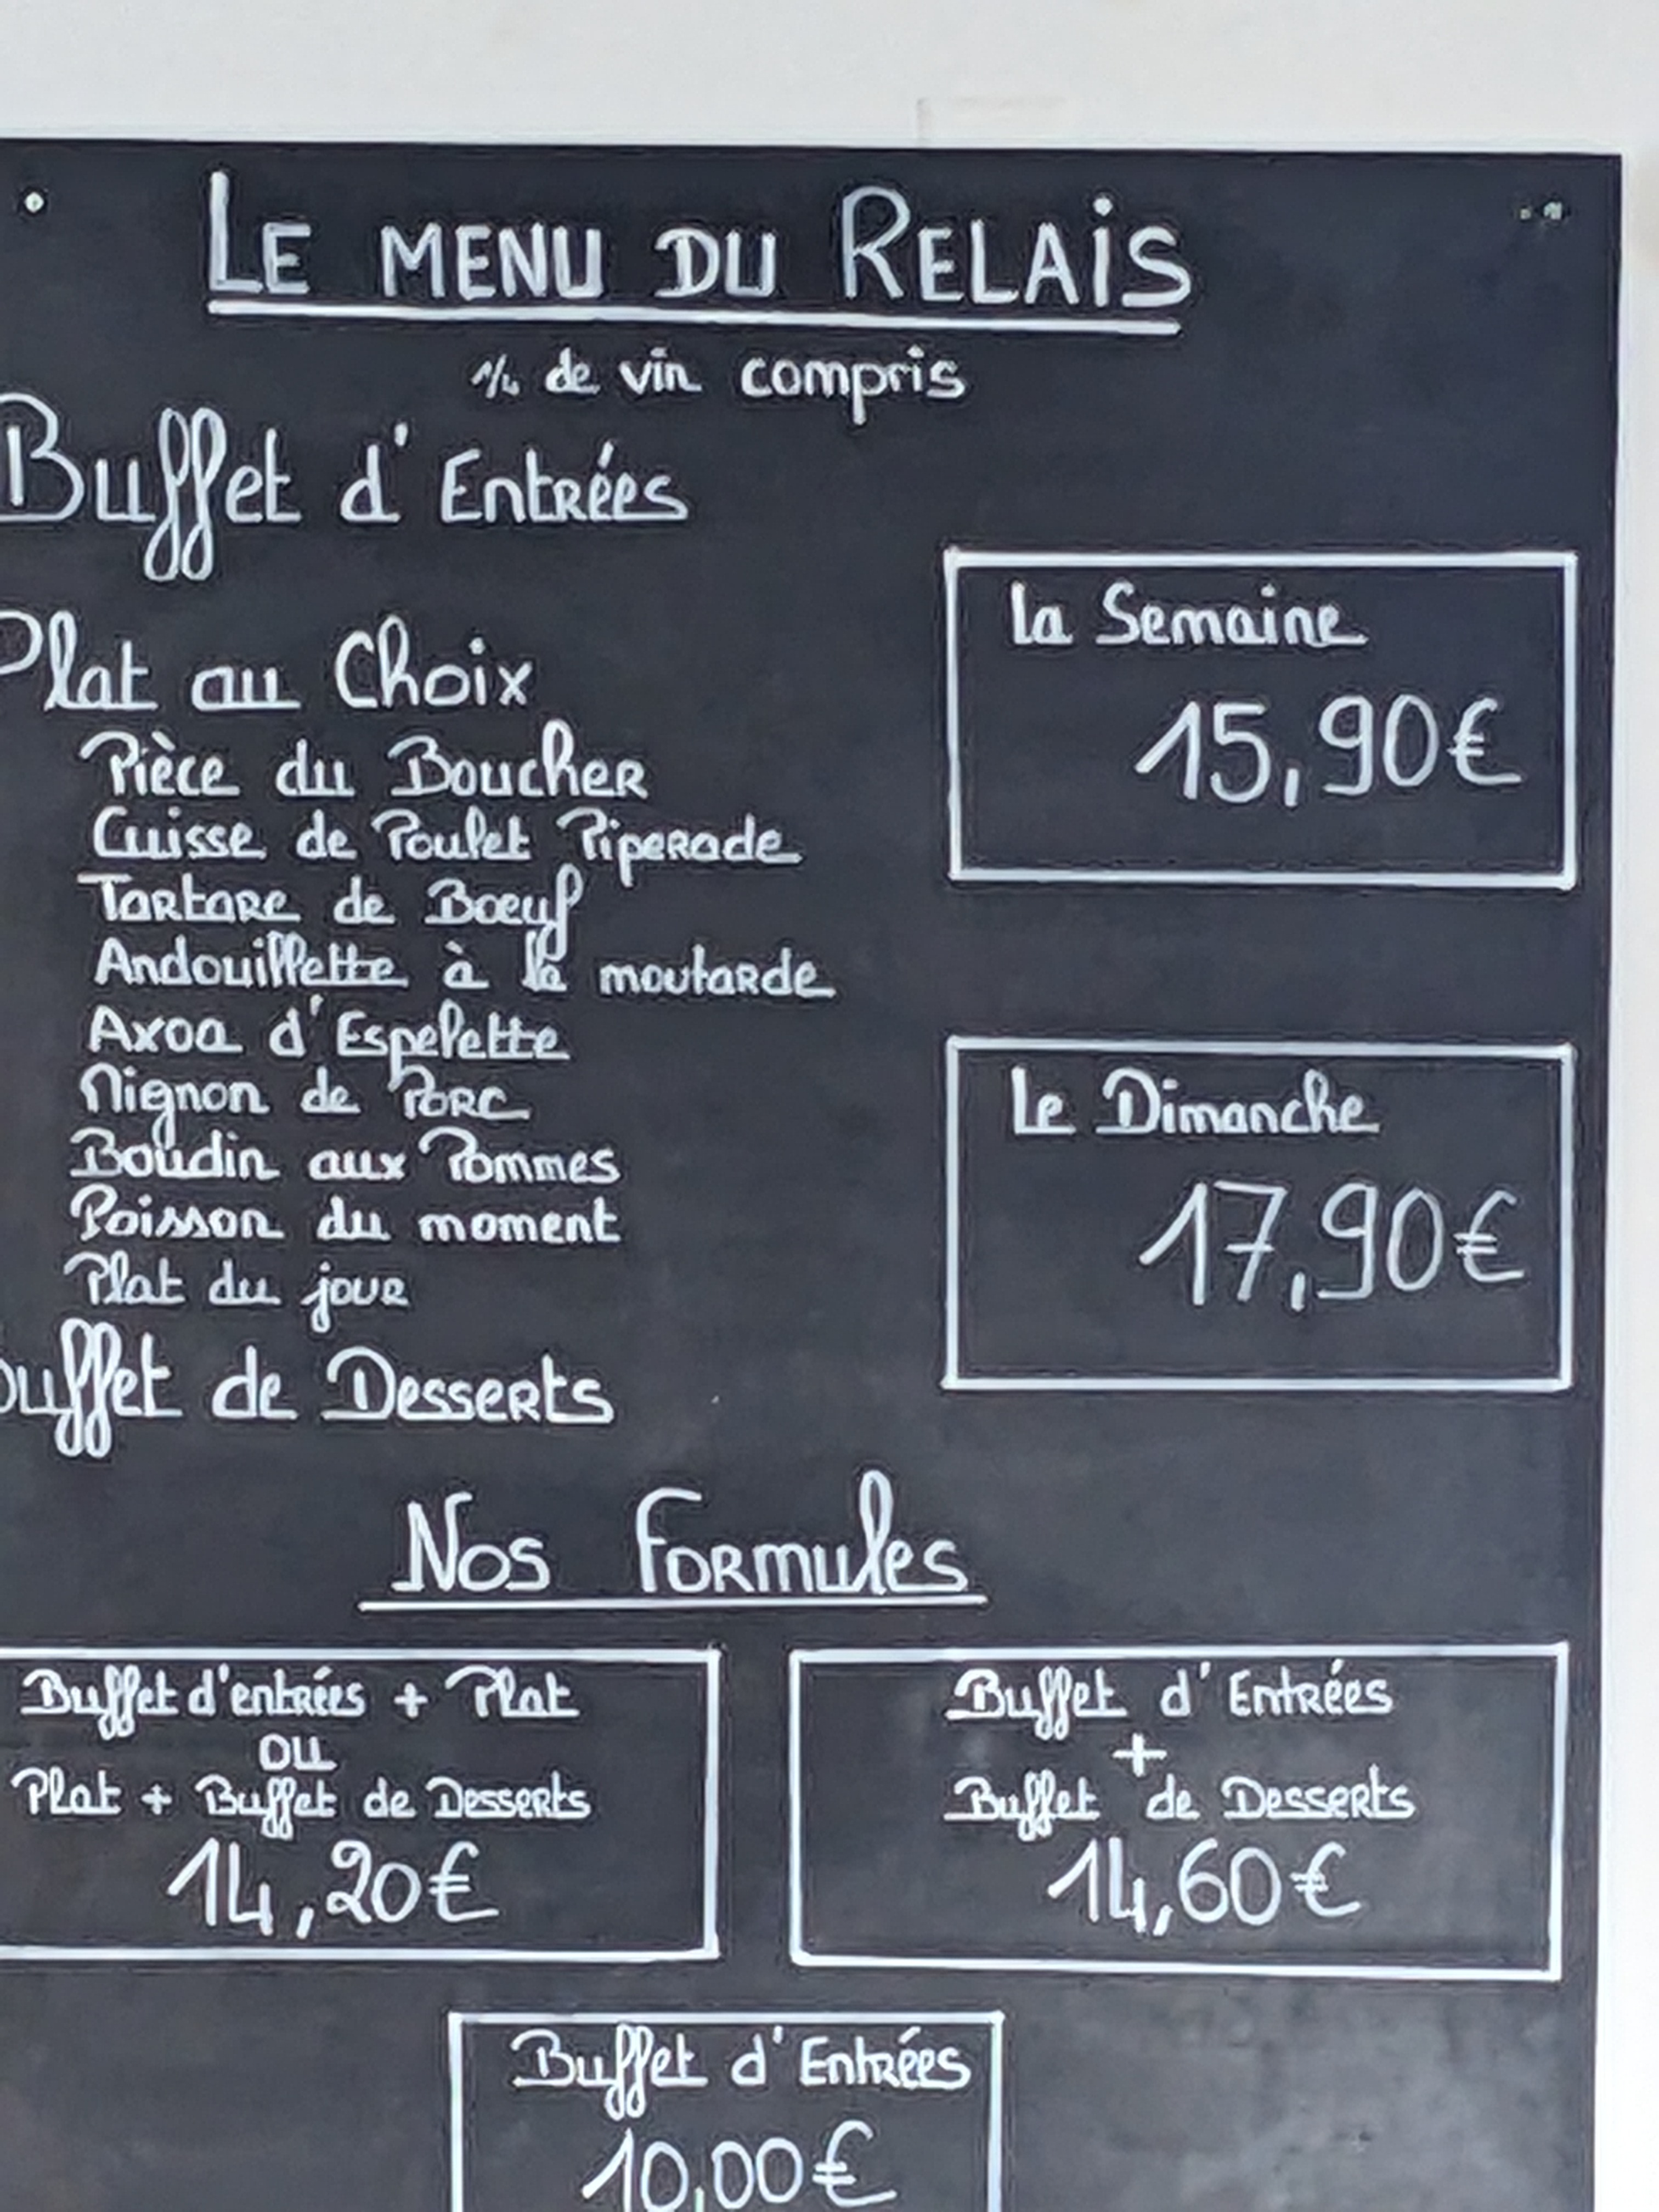 LE MENU DU RELAIS
1/4 de vin compris
Buffet d'Entrées
Plat au Choix
Pièce du Boucher
Cuisse de Poulet Piperade
Tartare de Bœuf
Andouillette à la moutarde
Axoa d'Espelette
Mignon de Porc
Boudin aux Pommes
Poisson du moment
Plat du jour
Buffet de Desserts
La Semaine
15,90€
Le Dimanche
17,90€
Nos Formules
Buffet d'entrées + Plat
ou
Plat + Buffet de Desserts
14,20€
Buffet d'Entrées
+
Buffet de Desserts
14,60€
Buffet d'Entrées
10,00€